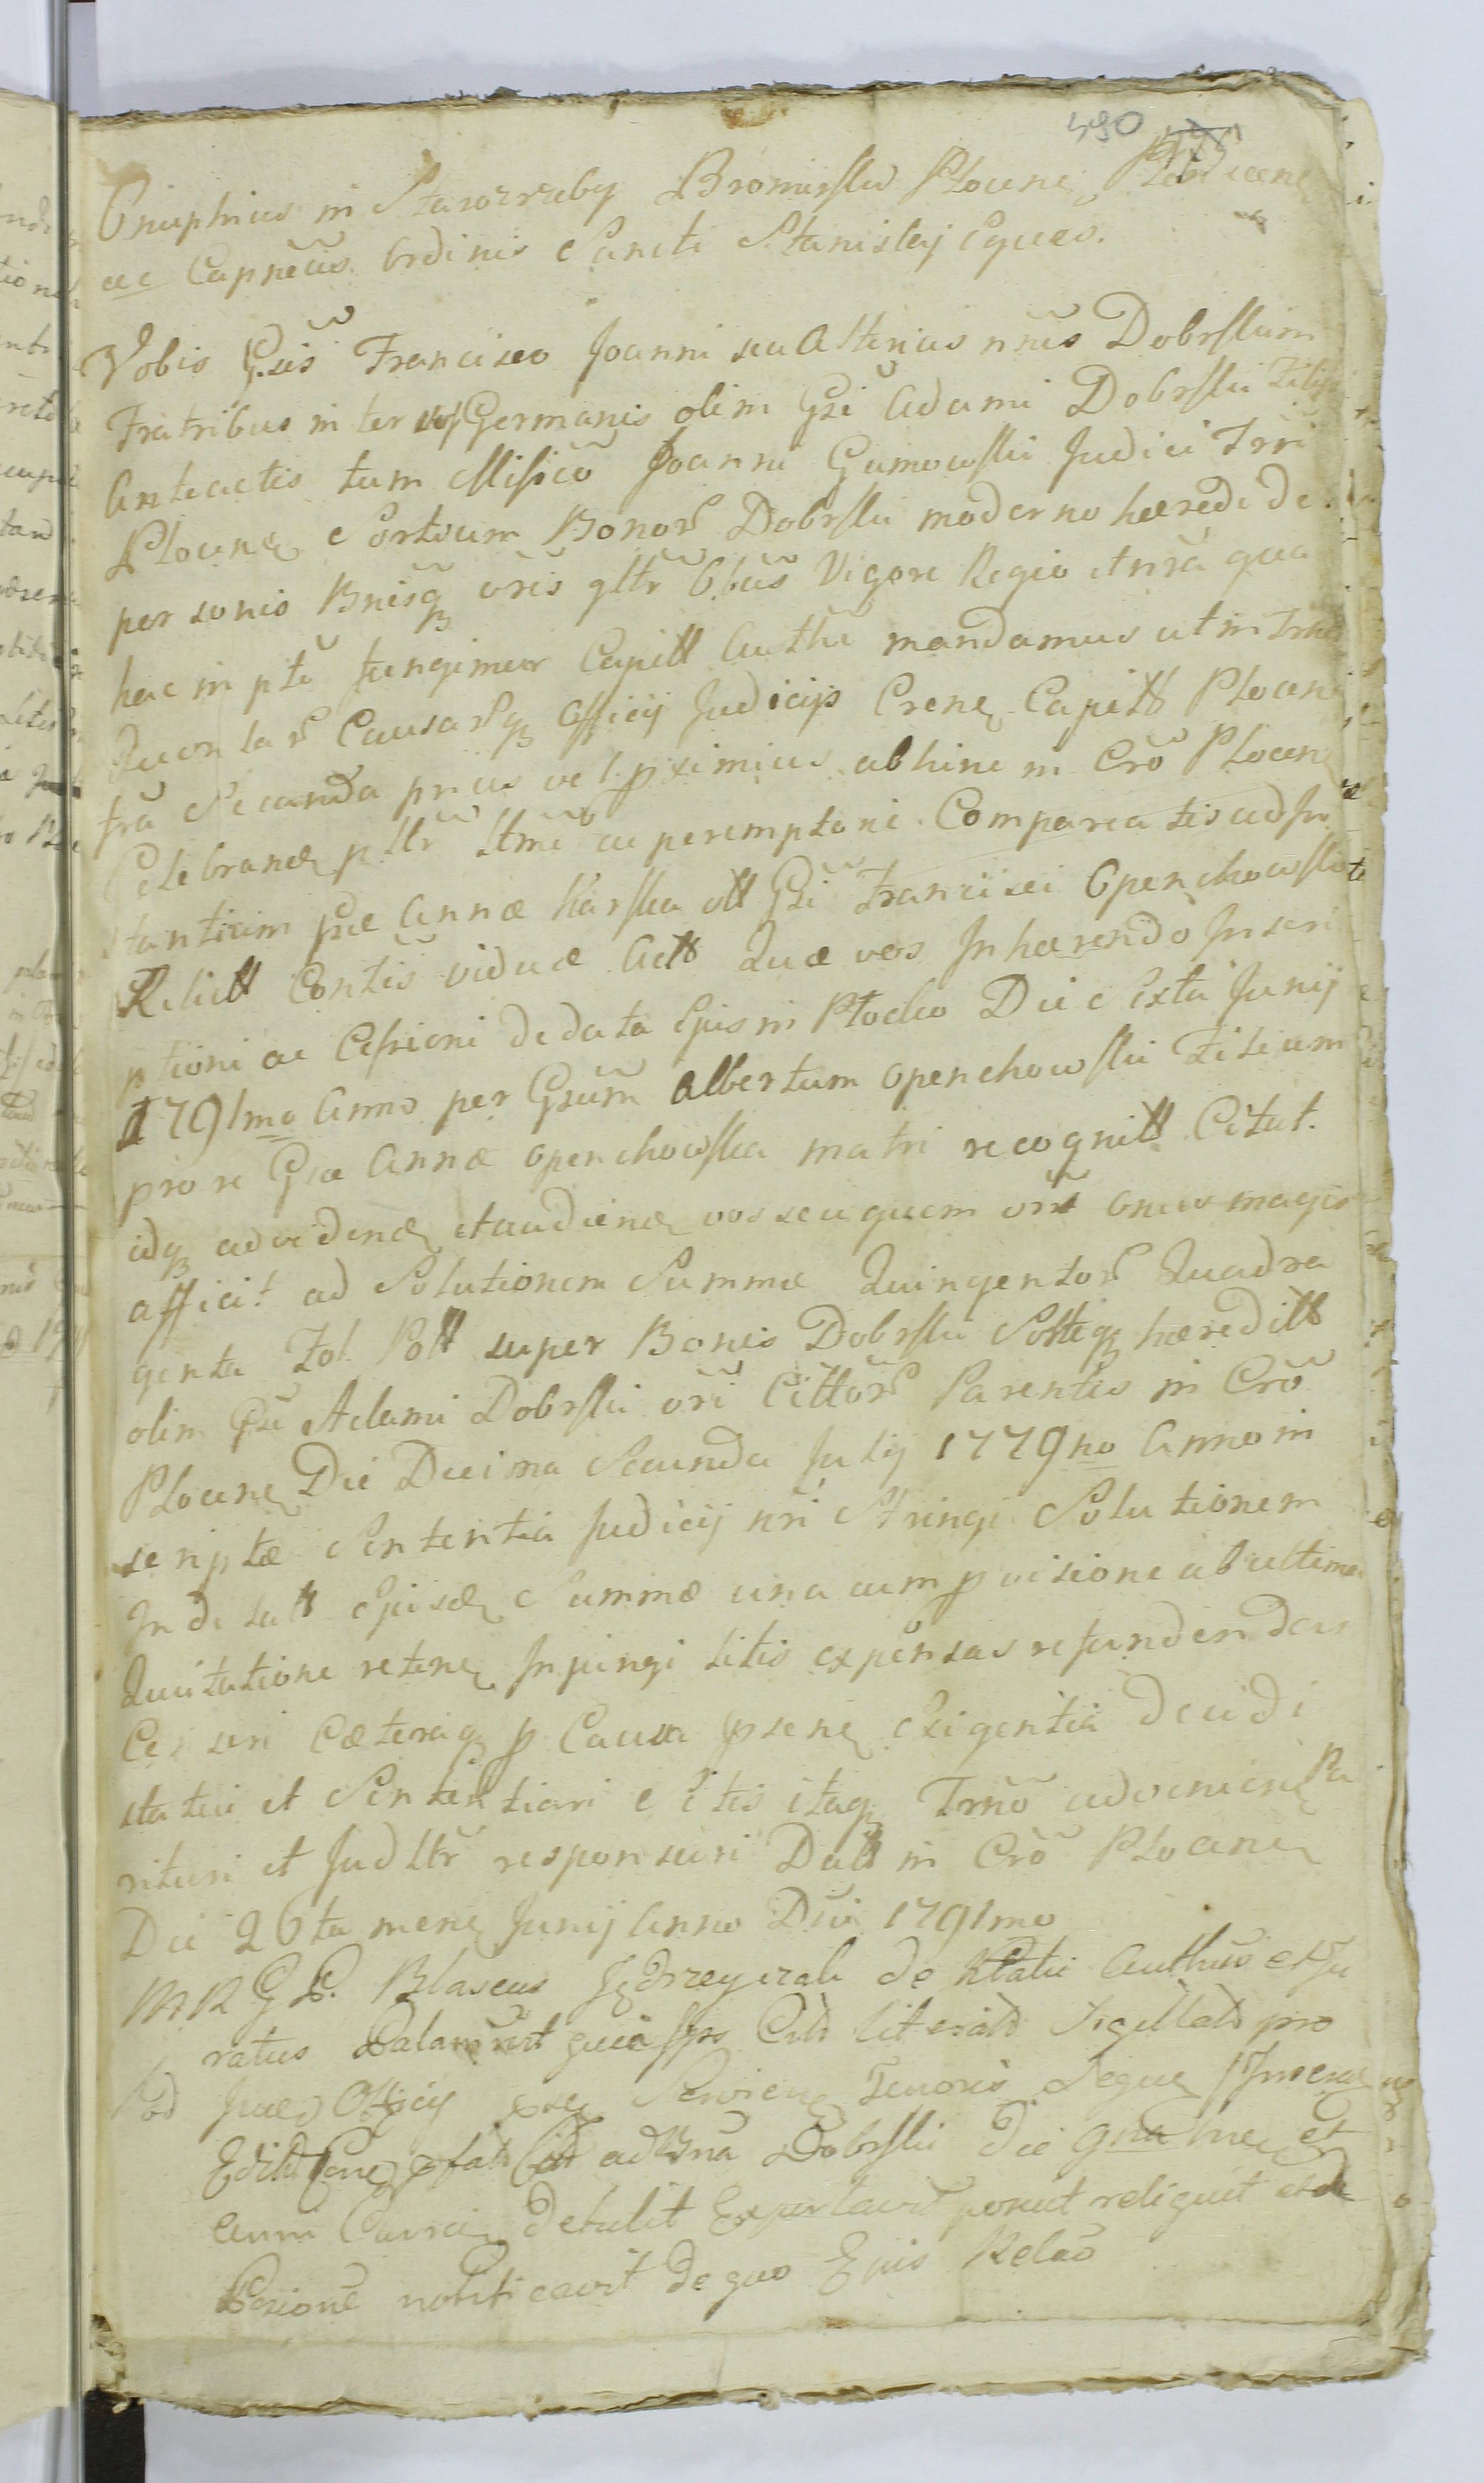 490
Onuphrius in Starorzeby Bromirski Plocen
ac Capnëus Ordinis Sancti Stanislaj Eques.
Vobis Gsis Francisco Joanni seu alterius nñis Dobrskim
Fratribus inter se Germanis olim Gsi Adami Dobrski Filijs
Anteactis tum Mfico Joanni Gumowski Judici Trri
Plocen Sortium Bonor̃ Dobrski moderno hæredi de
personis Bnisq vris gltr Obus Vigore Regio et nrã qua
hac in ptẽ fungimur Capitl Authte mandamus ut in Trnis
Querelar̃ Causar̃q Officij Judicijs Crens Capitl Plocen
frã Secunda prius vel pximius abhinc in Crõ Plocen
Celebran pltr ltme ac peremptorie Compareatis ad In
stantiam Gsæ Annæ Karska olt Gsi Francisci Openchowski
Relictt Contis viduæ Actt Quæ vos Inhærendo Inscri
ptioni ac Cessioni de data Ejus in Płocko Die Sexta Junij
1791mo Anno per Gsum Albertum Openchowski Filium
pro re Gsæ Annæ Openchowska matri recognitt Citat.
idq ad videnđ et audienđ vos seu quem vrũ onus magis
afficit ad Solutionem Summæ Quingentor̃ Quadra
genta Zol. Poll super Bonis Dobrski Sortteq hæreditt
olim Gsi Adami Dobrski vri Cittõr̃ Parentis in Crõ
Plocen Die Decima Secunda Julij 1779no Anno in
scriptæ Sententia Judicij nri Stringi Solutionem
Indilatt Ejusđ Summæ una cum pvisione ab ultima
Quitatione reten Injungi litis expensas refundendas
Censeri Cæteraq p Causa psen Exigentia decidi
statui et Sententiari Sitis itaq Trnõ advenien Pa
rituri et Judltr responsuri Datt in Crõ Plocen
Die 26ta mens Junij Anno Dni 1791mo
Blaseus Jędrzeyczak de Authũs et Ju
ratus palam quia hjs Citt literatt Sigillatt pro
Ad Jured Officij Servien Tenoris Seque Inserend
ad Bna Dobrski die 9na hujus et
anni Curren detulit Exportavit posuit reliquit et de
posicione notificavit de quo Ejus Relão